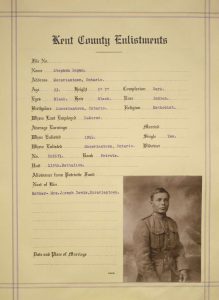 Kent County Enlistments
File No.
Name Stephen Logan.
Address Moraviantown, Ontario.
Age 23. Height 5' 7" Complexion Dark.
Eyes Black. Hair Black. Race Indian.
Birthplace Moraviantown, Ontario. Religion Methodist.
When Last Employed Laborer.
Average Earnings Married
When Enlisted 1915. Single Yes.
Where Enlisted Moraviantown, Ontario. Widower
No. Rank Private.
Unit Battalion.
Allowance from Patriotic Fund
Next of Kin
Mother- Mrs. Joseph Moraviantown.
Date and Place of Marriage